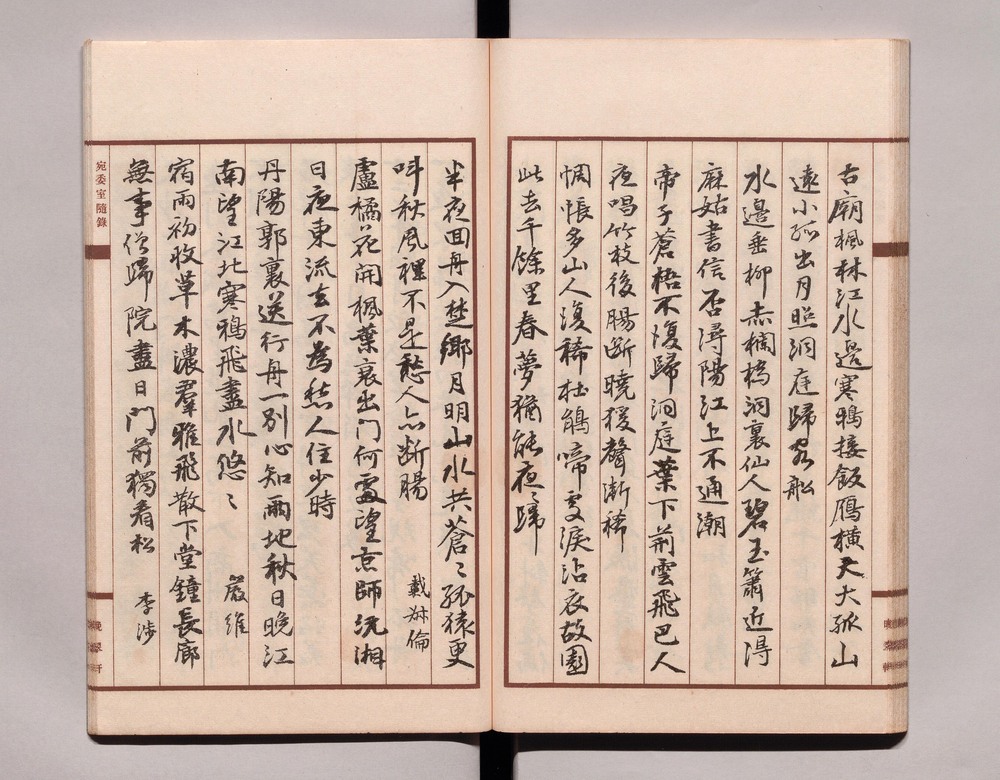 古廟楓林江水邊寒鴉接飯鴈橫天大孤山
遠小孤出月照洞庭歸客船
水邊垂柳赤欄橋洞裏仙人碧玉簫近得
麻姑書信否潯陽江上不通潮
帝子蒼梧不復歸洞庭葉下荊雲飛巴人
夜唱竹枝後腸斷曉猿聲漸稀
惆悵多山人復稀杜鵑啼處淚沾衣故園
此去千餘里春夢猶能夜〻歸
半夜回舟入楚鄉月明山水共蒼〻孤猿更
叫秋風裡不是愁人亦斷腸
戴叔倫
盧橘花開楓葉衰出門何處望京師沅湘
日夜東流去不為愁人住少時
丹陽郭裏送行舟一別心知兩地秋日晚江
南望江北寒鴉飛盡水悠〻
嚴維
宿雨初收草木濃羣雅飛散下堂鐘長廊
無事僧歸院盡日門前獨看松
李涉
宛委室隨錄